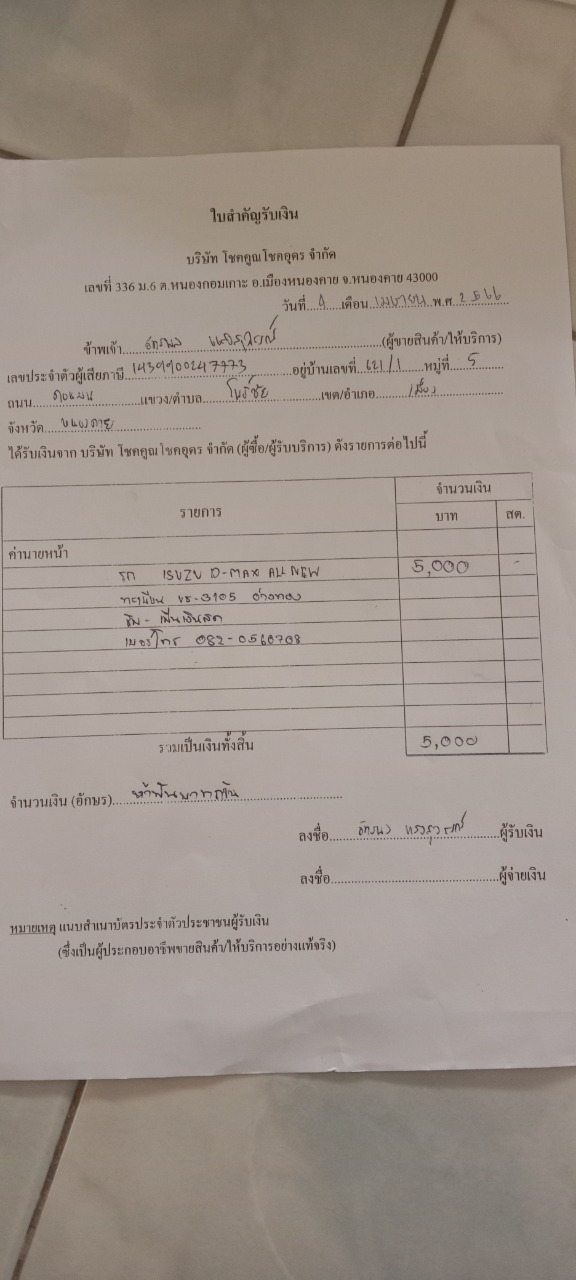 ใบสำคัญรับเงิน
บริษัท โชคคูณโชคอุดร จำกัด
เลขที่ 336 ม.6 ต.หนองกอมเกาะ อ.เมืองหนองคาย จ.หนองคาย 43000
วันที่ 9 เดือน เมษายน พ.ศ. 2566
ข้าพเจ้า (ผู้ขายสินค้า/ให้บริการ)
เลขประจำตัวผู้เสียภาษี 1439900247773 อยู่บ้านเลขที่ 621/1 หมู่ที่ 5
ถนน แขวง/ตำบล โพธิ์ชัย เขต/อำเภอ เมือง
จังหวัด หนองคาย
ได้รับเงินจาก บริษัท โชคคูณโชคอุดร จำกัด (ผู้ซื้อ/ผู้รับบริการ) ดังรายการต่อไปนี้
รายการ จำนวนเงิน
บาท สต.
ค่านายหน้า
รถ ISUZU D-MAX ALL NEW 5,000 -
ทะเบียน บร-3105 อ่างทอง
ซิม-เพิ่นเงินสด
เบอร์โทร 082-0560708
รวมเป็นเงินทั้งสิ้น 5,000
จำนวนเงิน (อักษร) ห้าพันบาทถ้วน
ลงชื่อ ผู้รับเงิน
ลงชื่อ ผู้จ่ายเงิน
หมายเหตุ แนบสำเนาบัตรประจำตัวประชาชนผู้รับเงิน
(ซึ่งเป็นผู้ประกอบอาชีพขายสินค้า/ให้บริการอย่างแท้จริง)